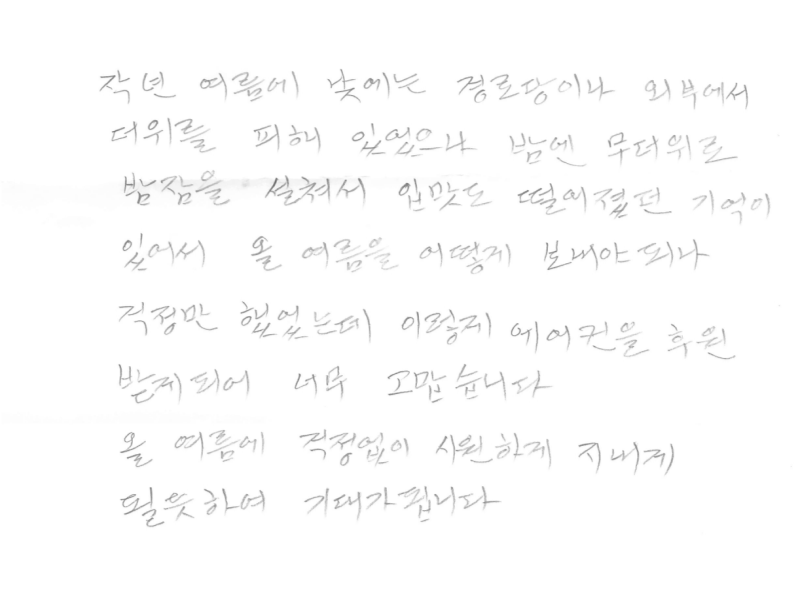 작년 여름에 낮에는 경로당이나 외부에서
더위를 피해 있었으나 밤엔 무더위로
밤잠을 설쳐서 입맛도 떨어졌던 기억이
있어서 올 여름을 어떻게 보내야 되나
걱정만 했었는데 이렇게 에어컨을 후원
받게되어 너무 고맙습니다
올 여름에 걱정없이 시원하게 지내게
될듯하여 기대가됩니다